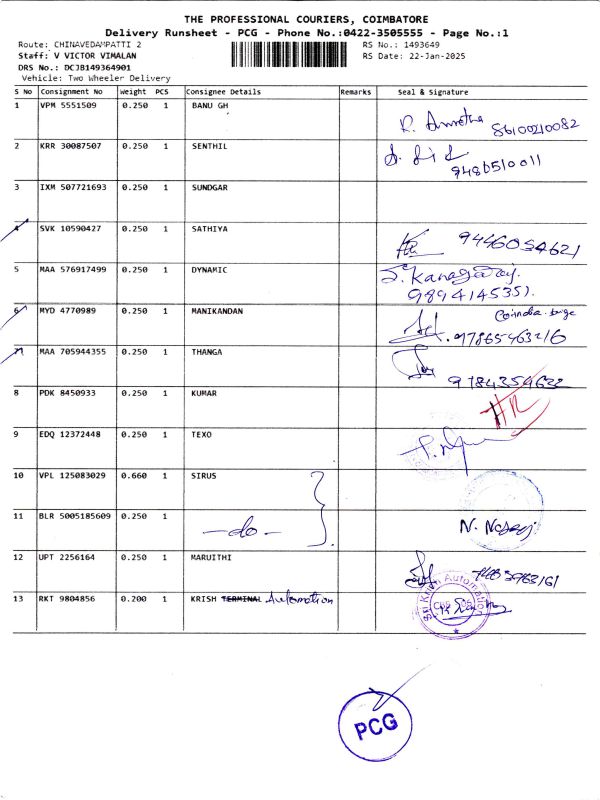 THE PROFESSIONAL COURIERS, COIMBATORE
Delivery Runsheet - PCG - Phone No.:0422-3505555 - Page No.:1
Route: CHINAVEDAMPATTI 2 RS No.: 1493649
Staff: V VICTOR VIMALAN RS Date: 22-Jan-2025
DRS No.: DCJB149364901
Vehicle: Two Wheeler Delivery
S No Consignment No Weight PCS Consignee Details Remarks Seal & Signature
1 VPM 5551509 0.250 1 BANU GH
8610021 0082
2 KRR 30087507 0.250 1 SENTHIL
9486510011
3 IXM 507721693 0.250 1 SUNDGAR
4 SVK 10590427 0.250 1 SATHIYA
9446034621
5 MAA 576917499 0.250 1 DYNAMIC
S. Kanagaraj.
9894145351.
6 MYD 4770989 0.250 1 MANIKANDAN
97865463216
7 MAA 705944355 0.250 1 THANGA
9784354632
8 PDK 8450933 0.250 1 KUMAR
HR
9 EDQ 12372448 0.250 1 TEXO
10 VPL 125083029 0.660 1 SIRUS
11 BLR 5005185609 0.250 1 -do-
N. Nataraj
12 UPT 2256164 0.250 1 MARUITHI
13 RKT 9804856 0.200 1 KRISH TERMINAL Automation
Sri Krish Automation
PCG